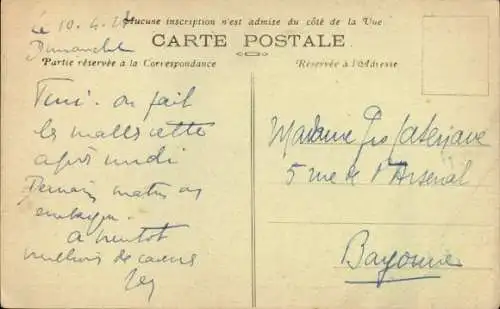 le 10.4.27
Dimanche
Aucune inscription n'est admise du côté de la Vue
CARTE POSTALE
Partie réservée à la Correspondance
Réservée à l'Adresse
on fait
les malles cette
après midi
Demain matin on
embarque.
a bientot
milliers de
Madame
5 rue de l'Arsenal
Bayonne